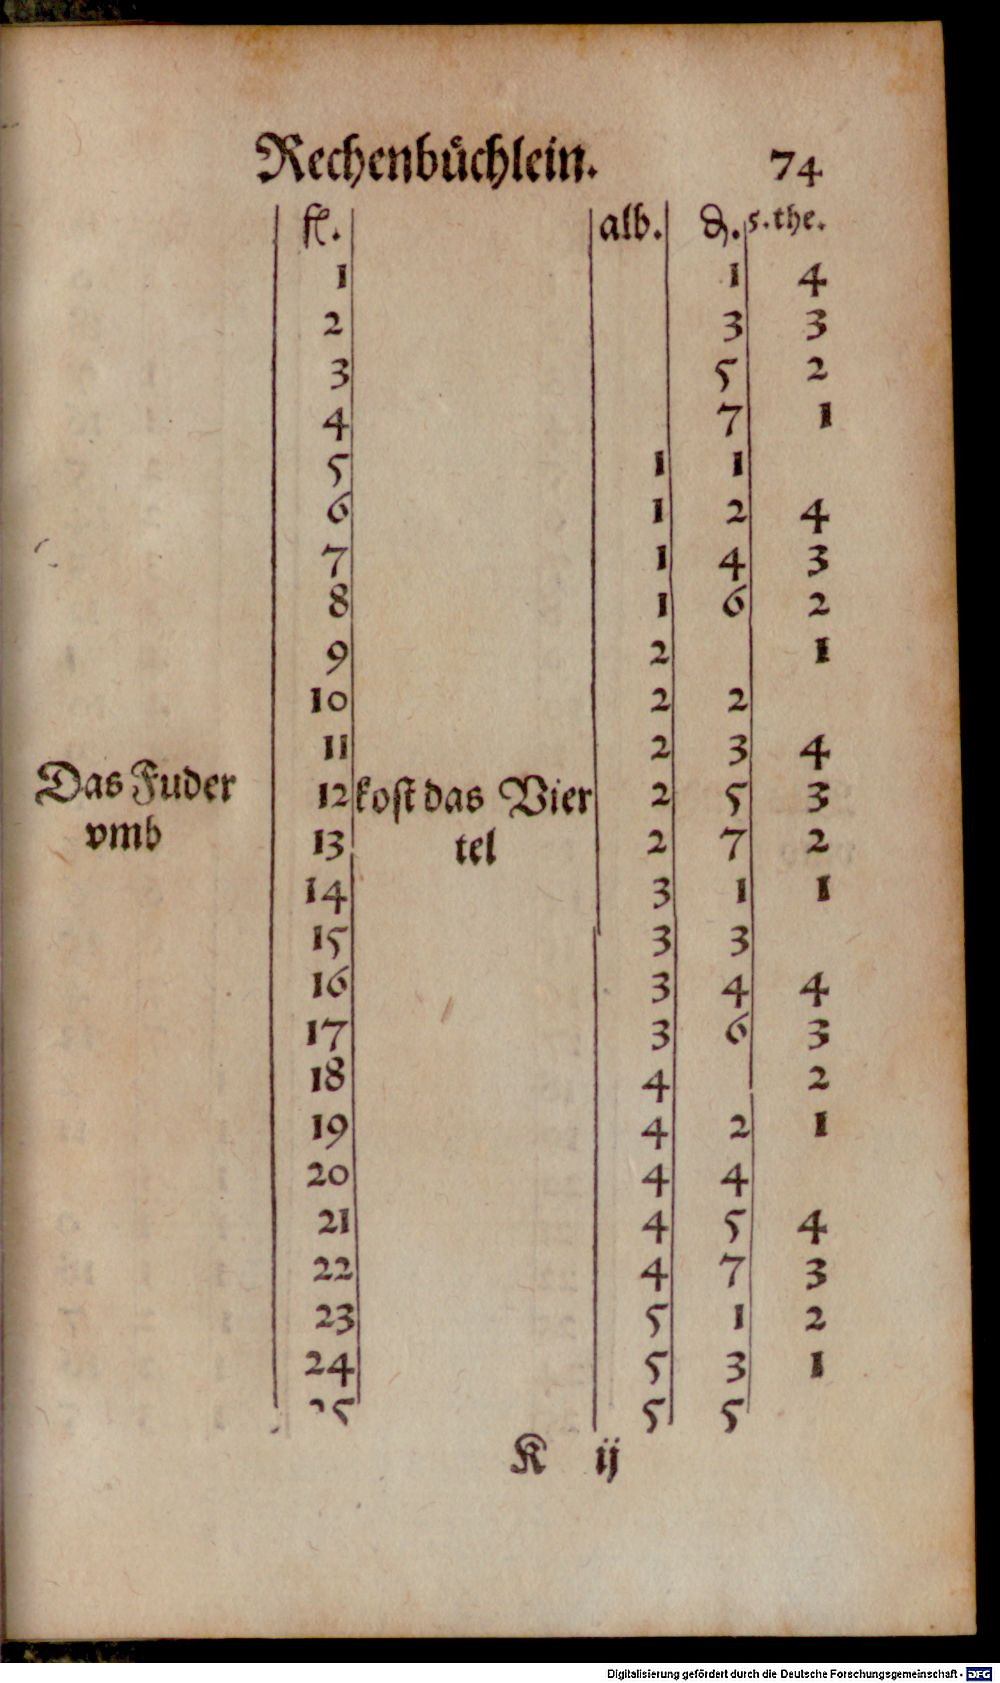 Rechenbuͤchlein. 74
fl. alb. ₰. 5.the.
1 1 4
2 3 3
3 5 2
4 7 1
5 1 1
6 1 2 4
7 1 4 3
8 1 6 2
9 2 1
10 2 2
11 2 3 4
Das Fuder 12 kost das Vier 2 5 3
vmb 13 tel 2 7 2
14 3 1 1
15 3 3
16 3 4 4
17 3 6 3
18 4 2
19 4 2 1
20 4 4
21 4 5 4
22 4 7 3
23 5 1 2
24 5 3 1
25 5 5
K ij
Digitalisierung gefördert durch die Deutsche Forschungsgemeinschaft - DFG